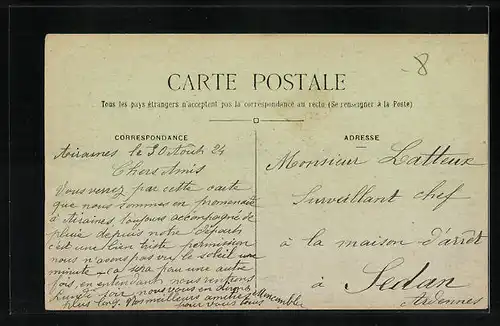 8
CARTE POSTALE
Tous les pays étrangers n'acceptent pas la correspondance au recto (Se renseigner à la Poste)
CORRESPONDANCE
ADRESSE
Airaines le 30 Août 24
Chers Amis
Vous venez par cette carte
que nous sommes en promenade
à Airaines, toujours accompagné de
pluie depuis notre départ
c'est une bien triste permission
nous n'avons pas vu le soleil une
minute ça sera pour une autre
fois, en entendant nous rentrons
Lundi soir nous vous en dirons
plus long. Vos meilleurs amitiés
pour vous tous
Monsieur Latteux
Surveillant chef
à la maison d'arrêt
à Sedan
Ardennes